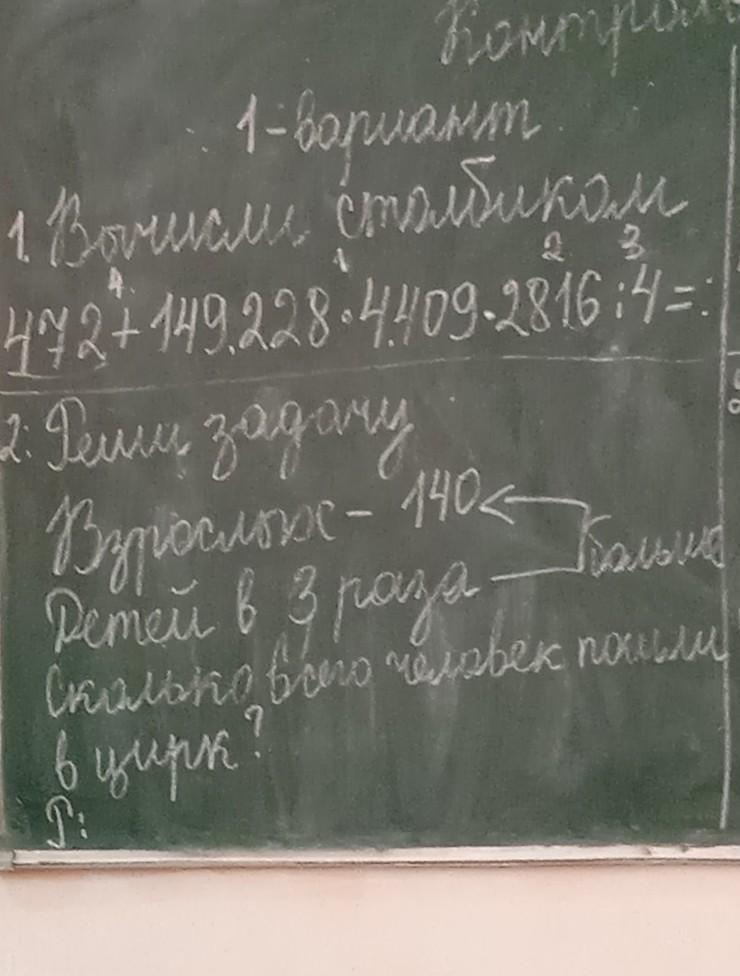 1-вариант
1. Вычисли столбиком
1 2 3
4
472+149.228·4.409·2816:4=
2. Реши задачу
Взрослых - 140
Больше
Детей в 3 раза
Сколько всего человек пошли
в цирк?
Р: